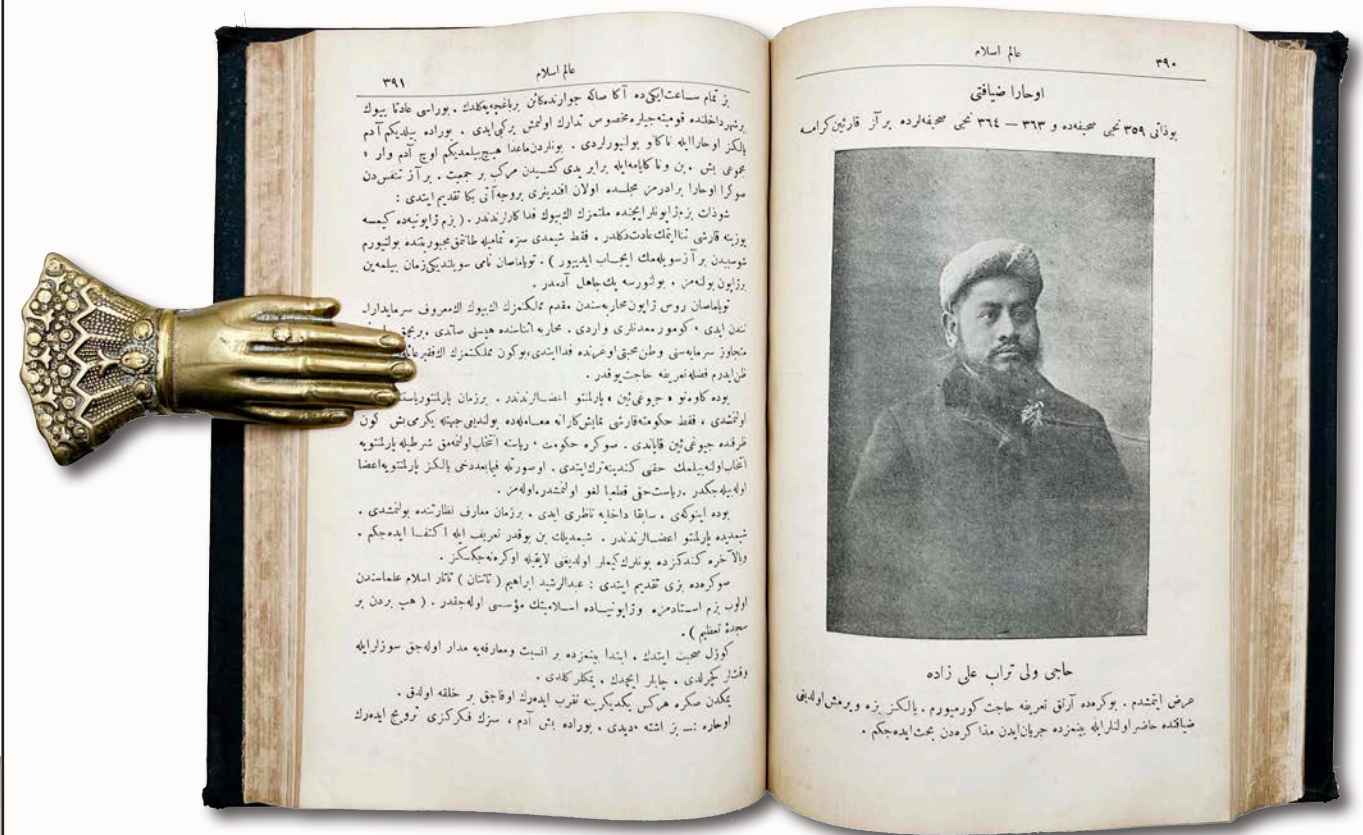 عالم اسلام
٣٩٠
اوحارا ضيافتی
بوذاتی ٣٥٩ نجی صحيفه‌ده و ٣٦٣ — ٣٦٤ نجی صحيفه‌لرده بر آز قارئين كرامه
حاجی ولی تراب علی زاده
عرض ايتمشدم . بوكره‌ده آرتق تعريفه حاجت كورميورم . يالكز بزه ويرمش اولديغی
ضيافتده حاضر اولنلرايله بينمزده جريان‌ايدن مذا كره‌دن بحث ايده‌جكم .
عالم اسلام
٣٩١
بز تمام ســاعت‌ايكی‌ده آ كا صاكه جوارنده‌كائن برباغچه‌يه‌كلدك . بوراسی عادتا بيوك
برشهرداخلنده قوميته‌جيلره مخصوص تدارك اولنمش بر‌كبی‌ايدی . بوراده بيلديكم آدم
يالكز اوحاراايله ناكانو بولنيورلردی . بونلردن‌ماعدا هيچ‌بيلمديكم اوچ آدم وار ؛
مجموعی بش . بن و ناكاياماايله برابر يدی كشيدن مركب بر جمعيت . بر آ ز تنفس‌دن
صوكرا اوحارا برادرمز مجلسده اولان افنديلری بروجه‌آتی بكا تقديم ايتدی :
شوذات بزم ژاپونلر ايچنده ملتمزك اك‌بيوك فدا كارلرندندر . ( بزم ژاپونيه‌ده كيمسه
يوزينه قارشی ثناايتمك‌عادت‌دكلدر . فقط شيمدی سزه تماميله طانتمق‌مجبوريتنده بولنيورم
شوسبیدن بر آ ز سويله‌مك ايجــاب ايدييور ) . توياماصان نامی سويلنديكی‌زمان بيلمه‌ين
برژاپون بولنه‌مز . بولنورسه پك‌جاهل آدمدر .
توياماصان روس ژاپون‌محاربه‌سندن مقدم مملكتمزك اك‌بيوك اك‌معروف سرمايه‌دارلـ
ندن ايدی ، كومور معدنلری واردی . محاربه اثناسنده هپسنی صاتدی .
متجاوز سرمايه‌سنی وطن‌محبتی اوغرنده فداايتدی،بوكون مملكتمزك اك‌فقير
ظن‌ايدرم فضله‌تعريفه حاجت‌يوقدر .
بوده كاوه‌نو « جيوغی‌ئين » پارلمنتو اعضــالرندندر . برزمان پارلمنتورياستنـ
اولنمشدی ، فقط حكومته‌قارشی نمايش‌كارانه معــامله‌ده بولنديغی‌جهتله يكرمی‌بش كون
ظرفنده جيوغی‌ئين قاپاندی . صوكره حكومت ، رياسته انتخاب‌اولنمه‌مق شرطيله‌پارلمنتويه
انتخاب‌اولنه‌بيلمك حقنی كندينه‌ترك‌ايتدی . اوصورتله فيمابعددخی يالكز پارلمنتويه‌اعضا
اوله‌بيله‌جكدر .رياست‌حقی قطعيا لغو اولنمشدر،اوله‌مز .
بوده اينوكه‌ی . سابقا داخليه ناظری ايدی . برزمان معارف نظارتنده بولنمشدی .
شيمديده پارلمنتو اعضــالرندندر . شيمديلك بن بوقدر تعريف ايله ا كتفــا ايده‌جكم .
وبالآ خره كندكزده بونلرك‌كيملر اولديغنی لايقيله اوكره‌نه‌جكسكز .
صوكره‌ده بزی تقديم ايتدی : عبدالرشيد ابراهيم ( تاتان ) تاتار اسلام علماسندن
اولوب بزم اســتادمز.و ژاپونيــاده اســلاميتك مؤسسی اوله‌جقدر . ( هپ بردن بر
سجدۀ تعظيم ) .
كوزل صحبت ايتدك . ابتدا بينمزده بر انسيت ومعارفه‌يه مدار اوله‌جق سوزلرايله
وقتلر كچرلدی . چايلر ايچدك . يمكلر كلدی .
يمكدن صكره هركس يكديكرينه تقرب ايده‌رك اوفاجق بر خلقه اولدق .
اوحاره :ــ بز اشته ،ديدی . بوراده بش آدم ، سزك فكركزی ترويج ايده‌رك